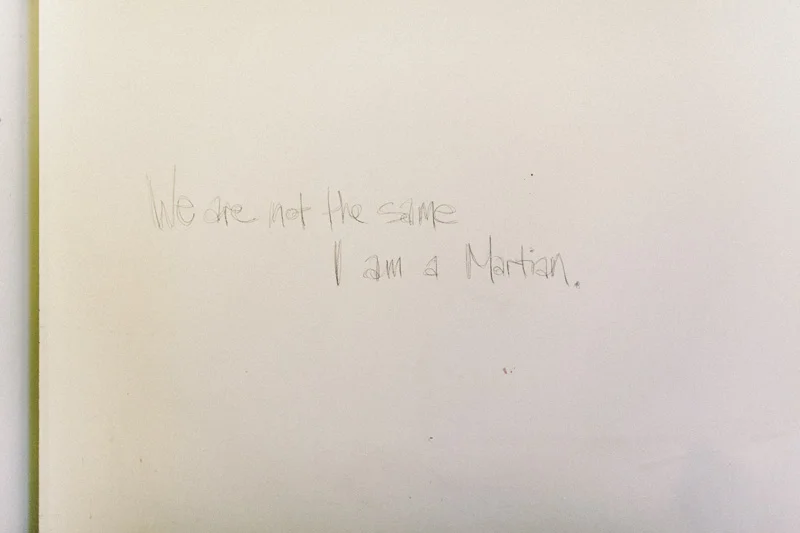 We are not the same
I am a Martian.